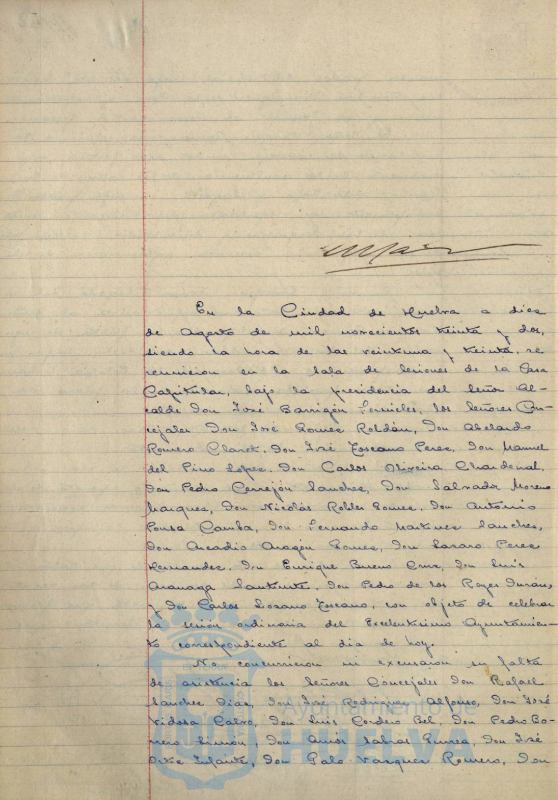 En la Ciudad de Huelva a diez
de Agosto de mil novecientos treinta y dos,
siendo la hora de las veintiuna y treinta, se
reunieron en la Sala de Sesiones de la Casa
Capitular, bajo la presidencia del Señor Al-
calde Don José Barrigón Fornieles, los Señores Con-
cejales Don José Gomez Roldán, Don Abelardo
Romero Claret, Don José Toscano Perez, Don Manuel
del Pino Lopez, Don Carlos Oliveira Chardenal,
Don Pedro Cerrejón Sanchez, Don Salvador Moreno
Marquez, Don Nicolás Robles Gomez, Don Antonio
Ponsa Camba, Don Fernando Martinez Sanchez,
Don Arcadio Aragón Gomez, Don Lazaro Perez
Hernandez, Don Enrique Bueno Cruz, Don Luis
Don Pedro de los Reyes Durán,
y Don Carlos Lozano Toscano, con objeto de celebrar
la sesión ordinaria del Excelentisimo Ayuntamien-
to correspondiente al dia de hoy.
No concurrieron ni excusaron su falta
de asistencia los Señores Concejales Don Rafael
Sanchez Diaz, Don José Rodriguez Alfonso, Don José
Vidosa Calvo, Don Luis Cordero Bel, Don Pedro Bo-
rrero Limón, Don Amós Sabrás Gurrea, Don José
Ortiz Infante, Don Vazquez Romero, Don
Ayuntamiento de
HUELVA